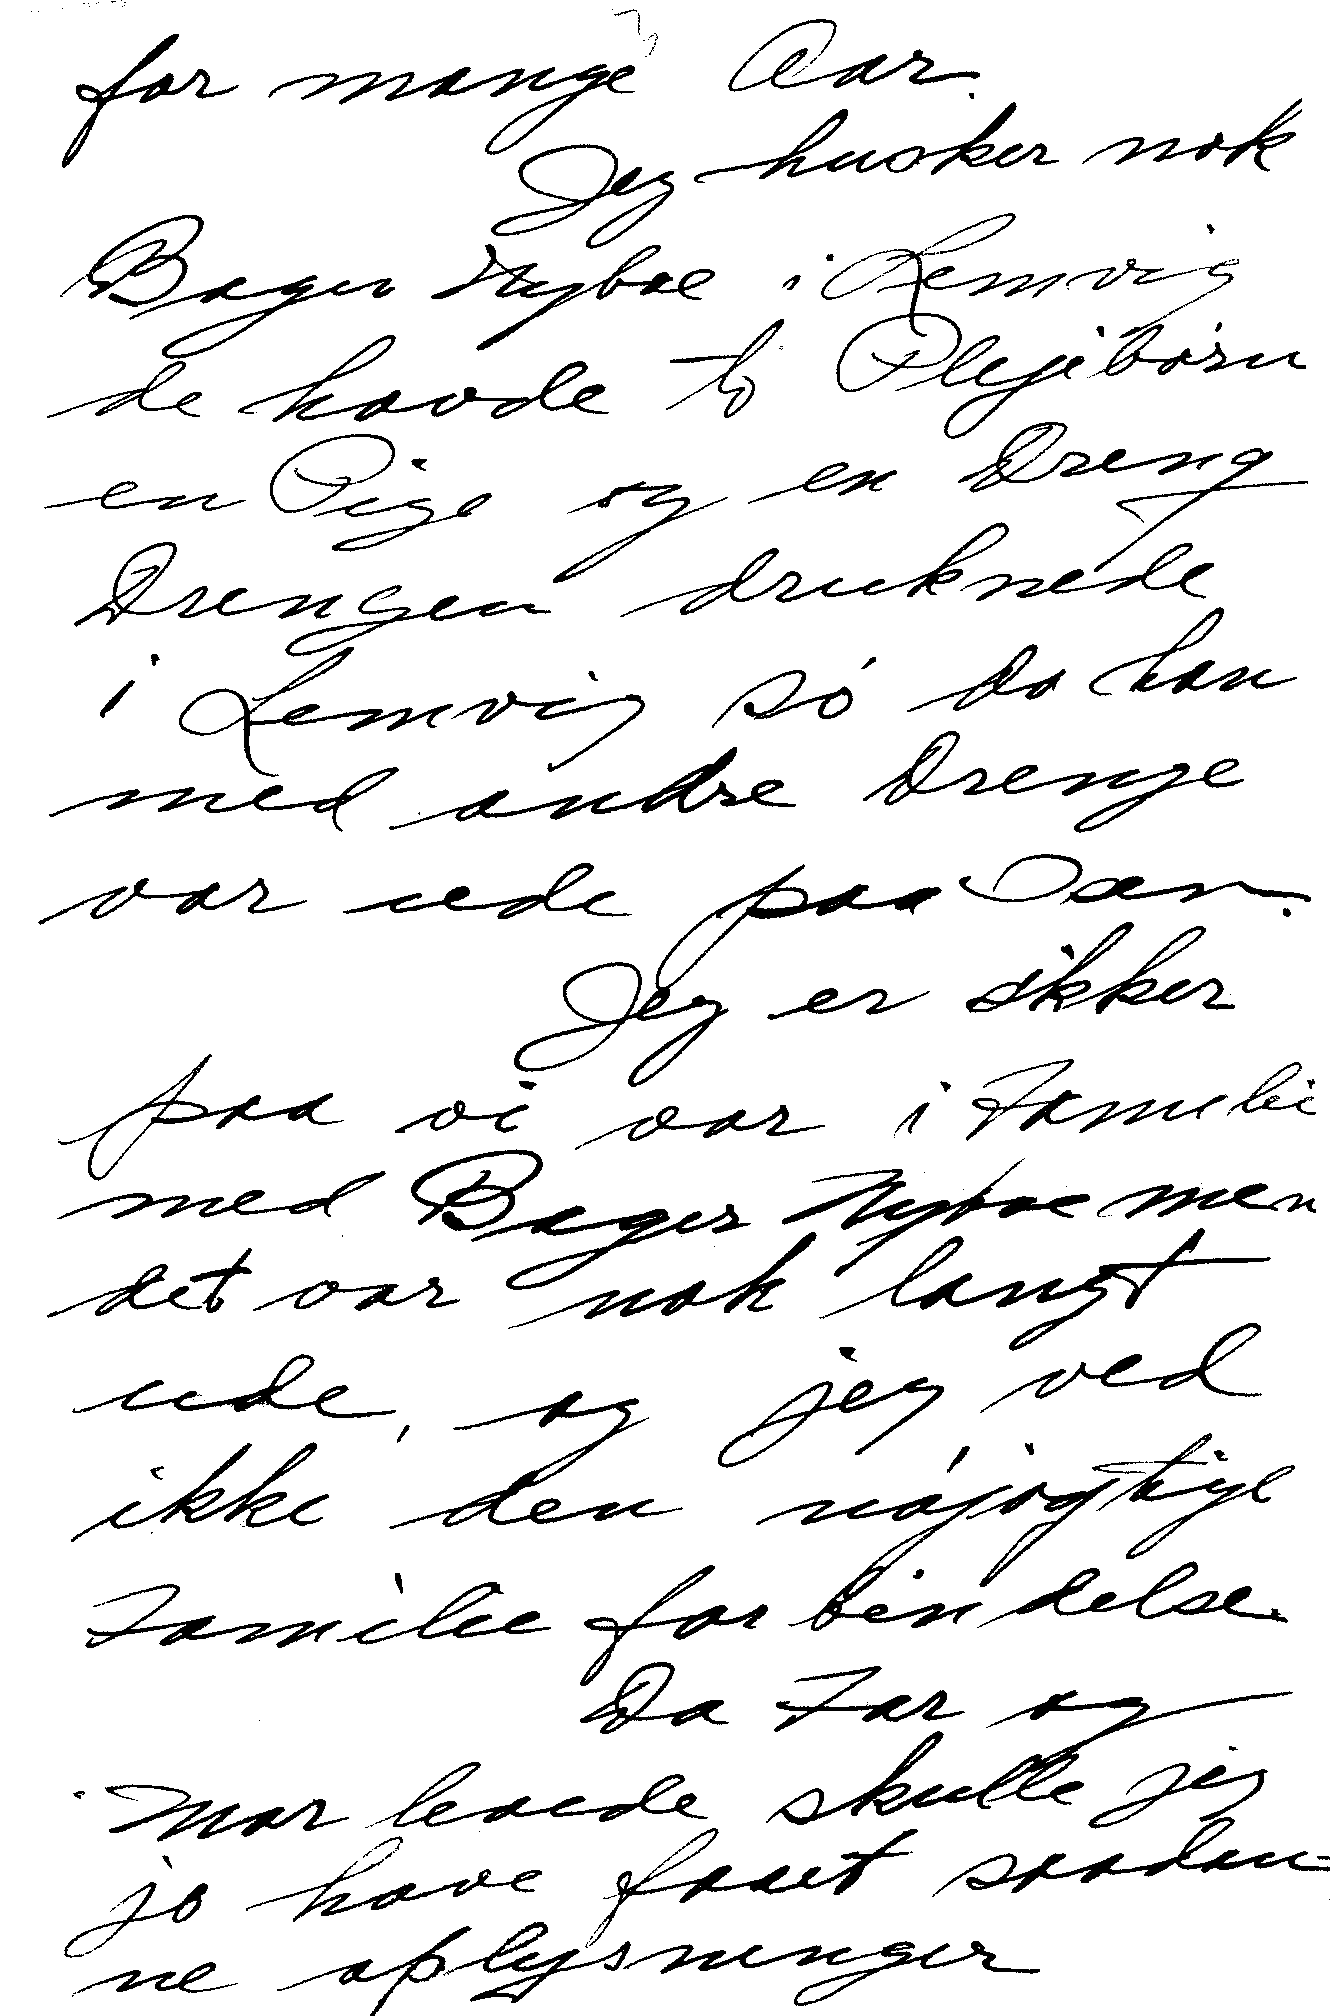 for mange Aar.
Jeg husker nok
Bager Nyboe i Lemvig
de havde to Plejebørn
en Pige og en Dreng
Drengen druknede
i Lemvig sø da han
med andre Drenge
var ude paa Isen.
Jeg er sikker
paa vi var i Familie
med Bager Nyboe men
det var nok langt
ude, og jeg ved
ikke den nøjagtige
Familie forbindelse.
Da Far og
Mor levede skulle jeg
jo have faaet saadan-
ne oplysninger